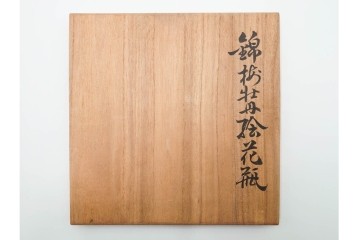 錦梅牡丹絵花瓶